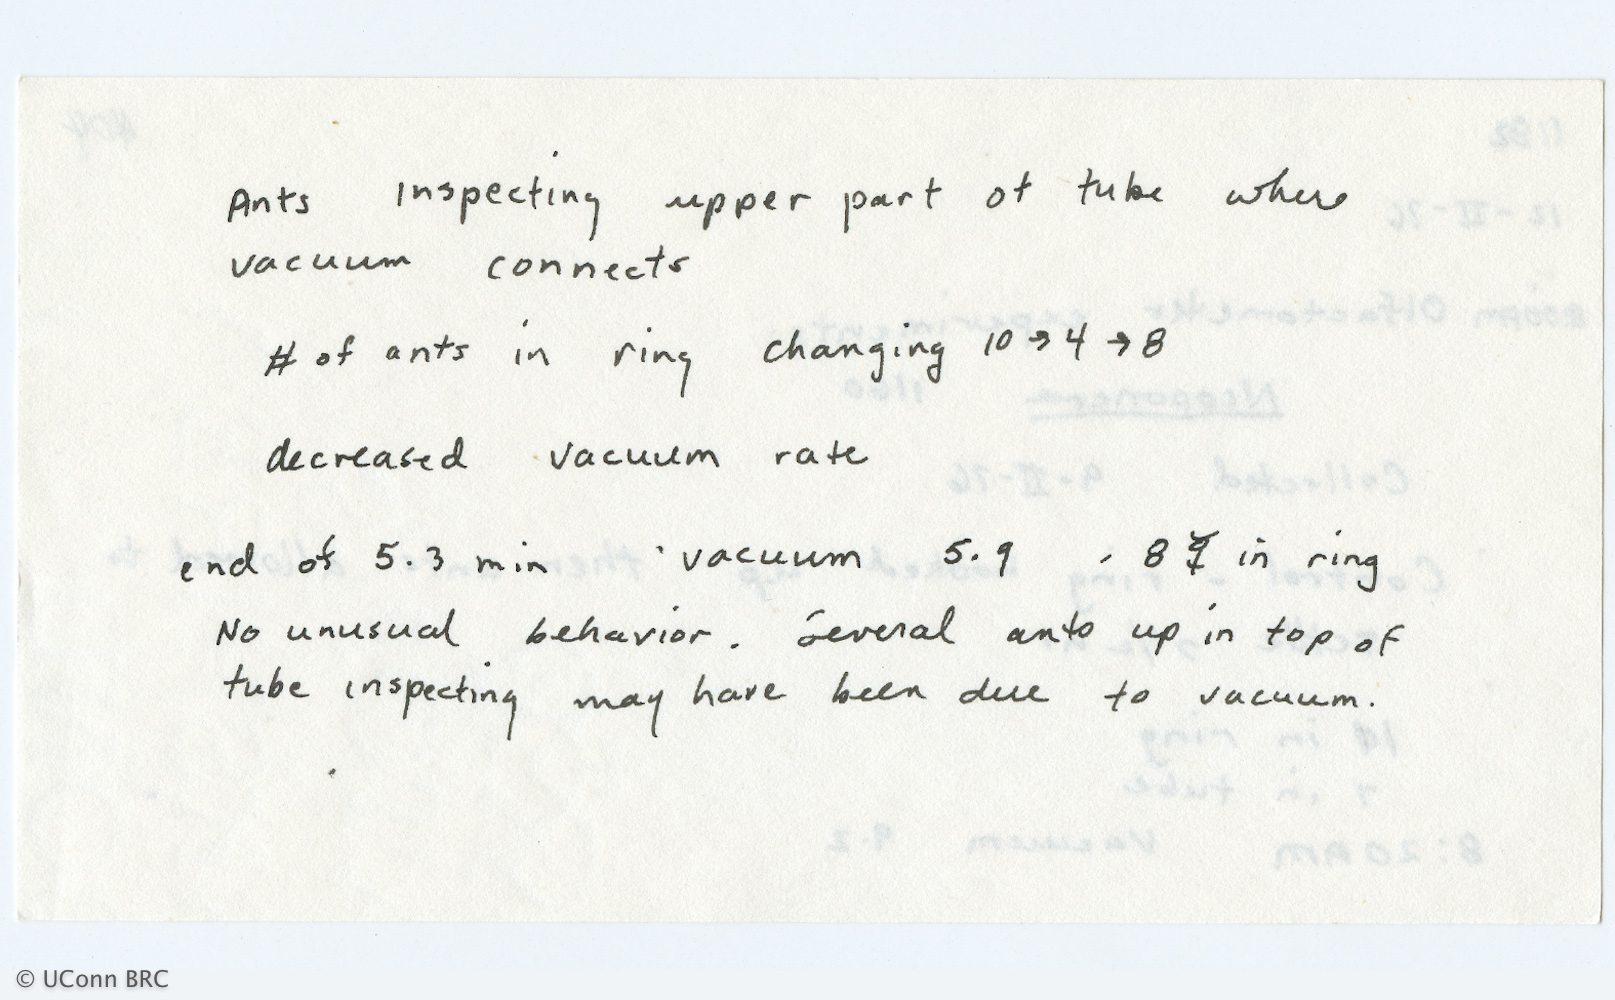 Ants inspecting upper part of tube where
vacuum connects
# of ants in ring changing 10→4→8
decreased vacuum rate
end of 5.3 min vacuum 5.9 . 8 ☿ in ring
No unusual behavior. Several ants up in top of
tube inspecting may have been due to vacuum.
© UConn BRC